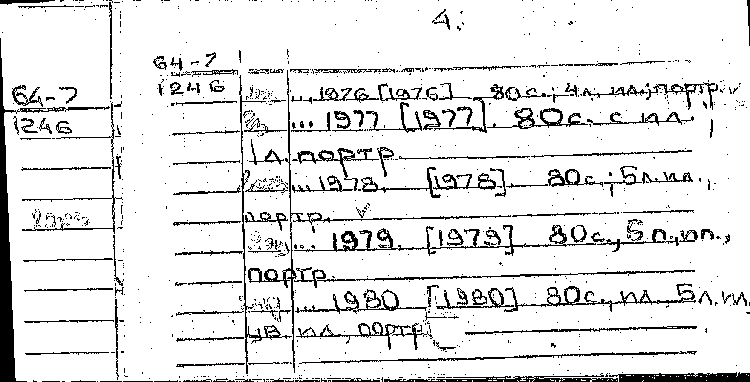 4.
64-7
1246
64-7
1246
... 1976 [1976] 80с.; 4л. ил.; портр.
... 1977 [1977]. 80с. с ил.;
1л. портр.
... 1978. [1978]. 80с.; 5л. ил.,
портр.
... 1979. [1979] 80с., 5л., ил.,
портр.
... 1980 [1980] 80с., ил., 5л. ил,
цв. ил., портр.